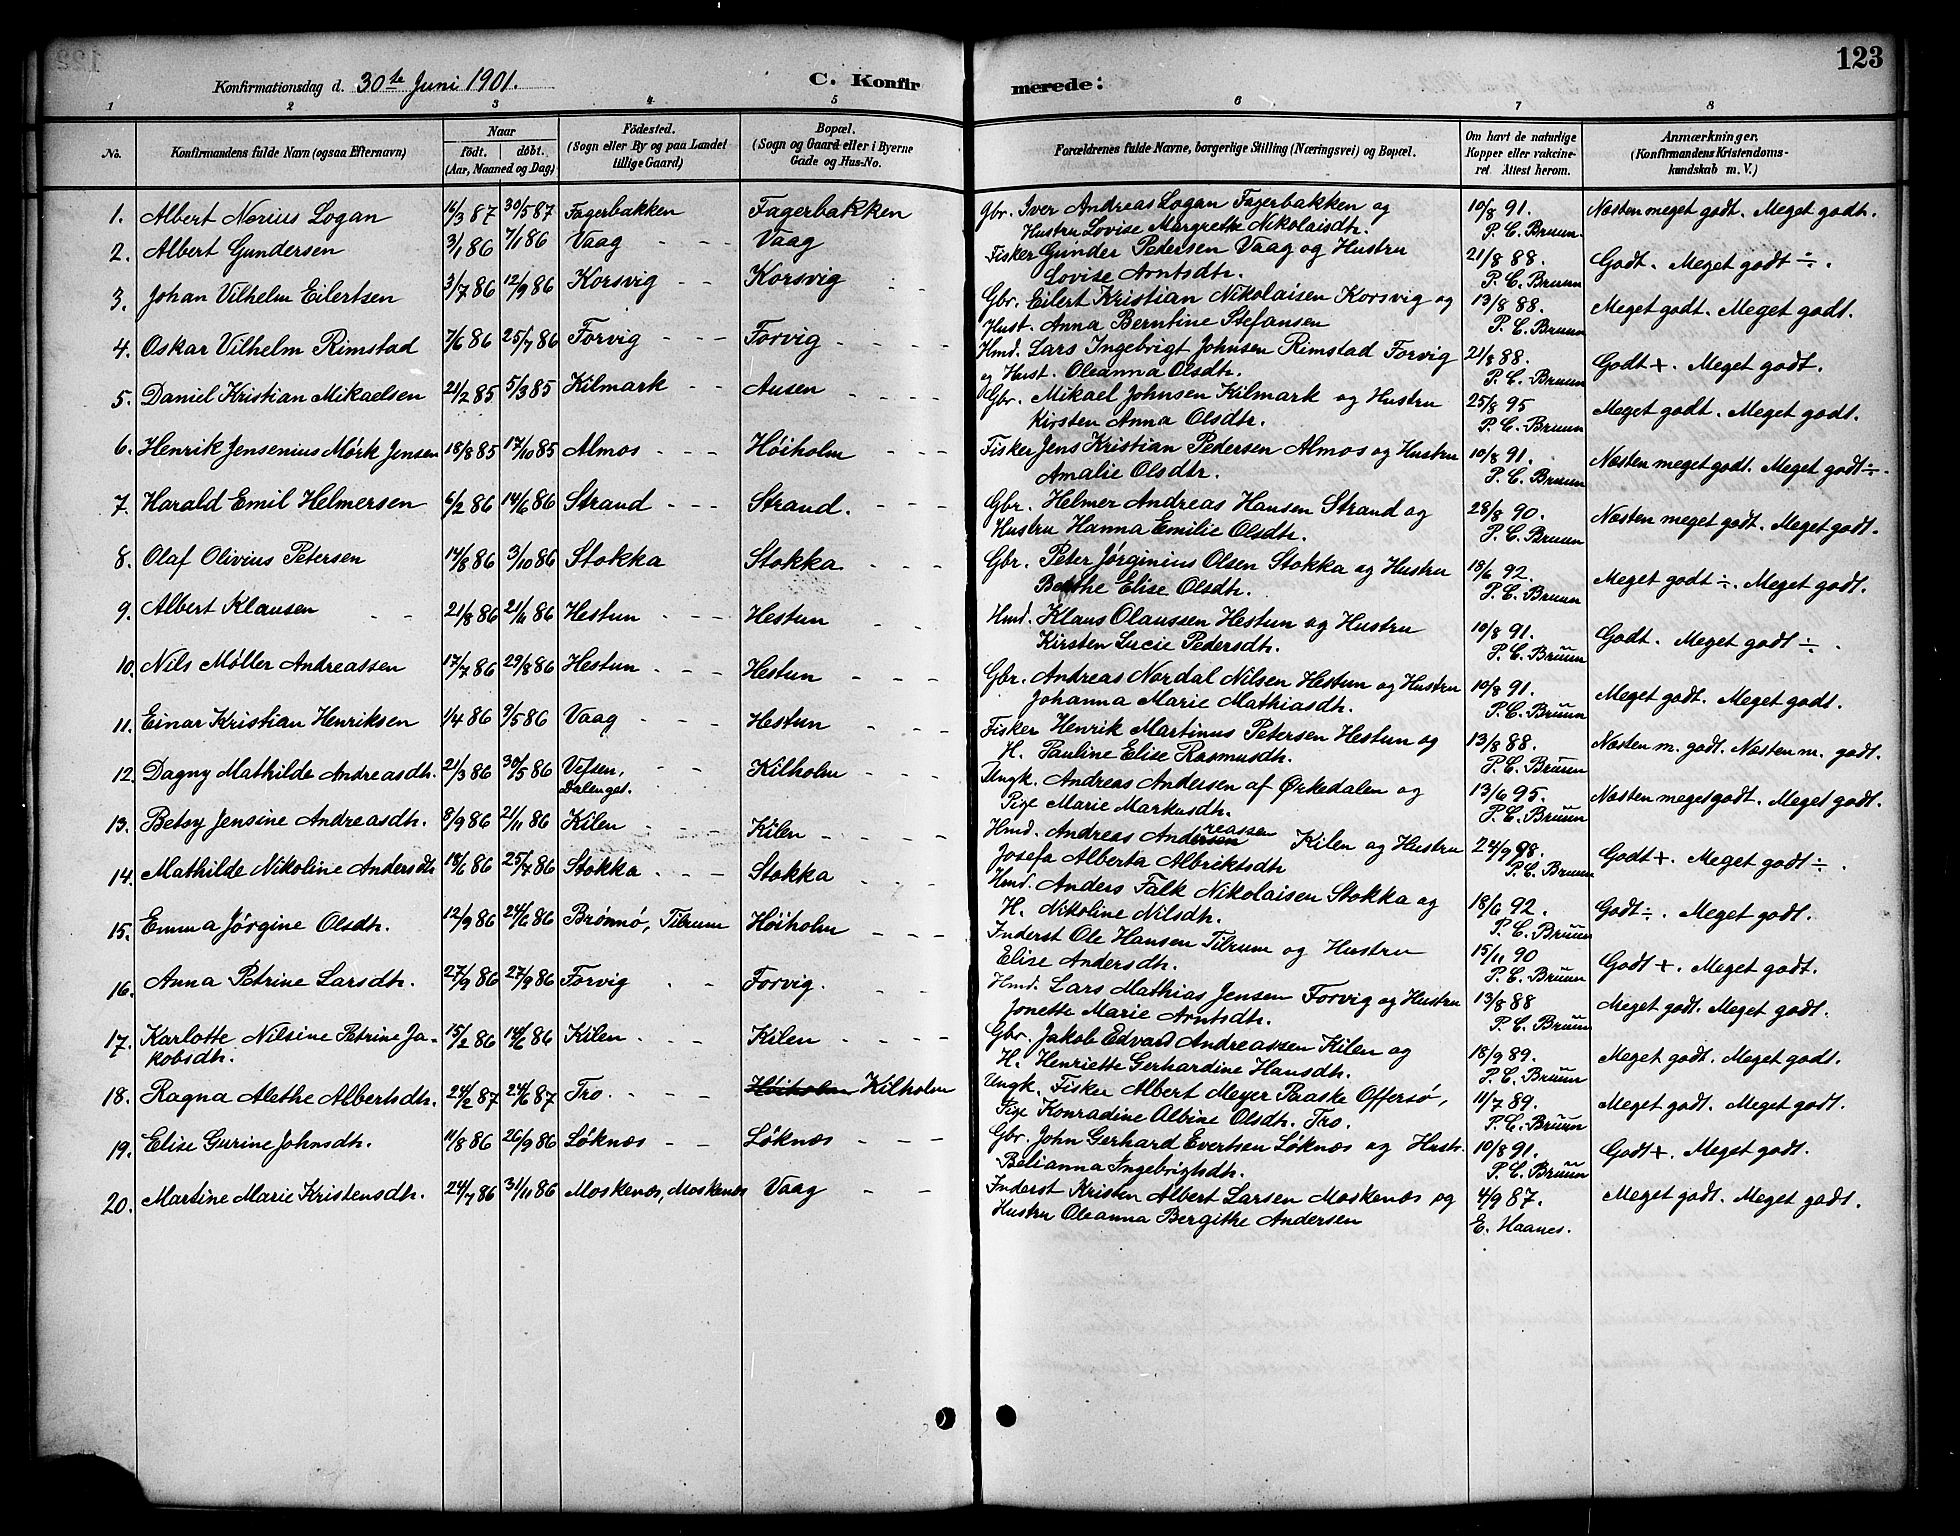 123
Konfirmationsdag d. 30te Juni 1901.
C. Konfirmerede:
1 2 3 4 5 6 7 8
No.
Konfirmandens fulde Navn (ogsaa Efternavn)
Naar
födt. döbt.
(Aar, Maaned og Dag)
Födested.
(Sogn eller By og paa Landet
tillige Gaard)
Bopæl.
(Sogn og Gaard eller i Byerne
Gade og Hus-No.
Forældrenes fulde Navne, borgerlige Stilling (Næringsvei) og Bopæl.
Om havt de naturlige
Kopper eller vakcine-
ret. Attest herom.
Anmærkninger.
(Konfirmandens Kristendoms-
kundskab m. V.)
1. Albert Nerius Logan 16/3 87 30/5 87 Fagerbakken Fagerbakken Gbr. Iver Andreas Logan Fagerbakken og 10/8 91. Næsten meget godt. Meget godt.
Hustru Lovise Margrethe Nikolaisdtr. P. C. Bruun
2. Albert Gundersen 3/1 86 7/1 86 Vaag - - - Vaag Fisker Gunder Pedersen Vaag og Hustru 21/8 88. Godt. Meget godt ÷.
Lovise Arntsdtr. P. C. Bruun
3. Johan Vilhelm Eilertsen 3/7 86 12/9 86 Korsvig - - Korsvig Gbr. Eilert Kristian Nikolaisen Korsvig og 13/8 88. Meget godt. Meget godt.
Hust. Anna Berntine Stefansen P. C. Bruun
4. Oskar Vilhelm Rimstad 7/6 86 25/7 86 Forvig - - - Forvig - - - - Hmd. Lars Ingebrigt Johnsen Rimstad Forvig 21/8 88. Godt +. Meget godt.
og Hust. Oleanna Olsdtr. P. C. Bruun
5. Daniel Kristian Mikaelsen 21/2 85 5/3 85 Kilmark - - Ausen - - - - Gbr. Mikael Johnsen Kilmark og Hustru 25/8 95 Meget godt. Meget godt.
Kirsten Anna Olsdtr. P. C. Bruun
6. Henrik Jensenius Mørk Jensen 18/8 85 17/10 85 Almos - - - Høiholm - - - Fisker Jens Kristian Pedersen Almos og Hustru 10/8 91. Næsten meget godt. Meget godt ÷.
Amalie Olsdtr. P. C. Bruun
7. Harald Emil Helmersen 6/2 86 14/6 86 Strand - - - Strand. - - - Gbr. Helmer Andreas Hansen Strand og 28/8 90. Næsten meget godt. Meget godt.
Hustru Hanna Emilie Olsdtr. P. C. Bruun
8. Olaf Olivius Petersen 14/8 86 3/10 86 Stokka Stokka - - - Gbr. Peter Jørginius Olsen Stokka og Hustru 18/6 92. Meget godt ÷. Meget godt.
Berthe Elise Olsdtr. P. C. Bruun
9. Albert Klausen 21/8 86 21/11 86 Hestun - - - Hestun - - Hmd. Klaus Olaussen Hestun og Hustru 10/8 91. Godt. Meget godt ÷.
Kirsten Lucie Pedersdtr. P. C. Bruun
10. Nils Møller Andreassen 17/7 86 29/8 86 Hestun - - - Hestun - - - Gbr. Andreas Nordal Nilsen Hestun og Hustru 10/8 91. Meget godt. Meget godt.
Johanna Marie Mathiasdtr. P. C. Bruun
11. Einar Kristian Henriksen 1/4 86 9/5 86 Vaag - - - Hestun - - - Fisker Henrik Martinus Petersen Hestun og 13/8 88. Næsten m. godt. Næsten m. godt.
H. Pauline Elise Rasmusdtr. P. C. Bruun
12. Dagny Mathilde Andreasdtr. 21/3 86 30/5 86 Vefsen, - - Kilholm - - - Ungk. Andreas Andersen af Ørkedalen og 13/6 95. Næsten meget godt. Meget godt.
Dalenget. Pige Marie Markusdtr. P. C. Bruun
13. Betsy Jensine Andreasdtr. 8/9 86 21/11 86 Kilen - - - Kilen - - - - Hmd. Andreas Andersen reassen Kilen og Hustru 24/9 98. Godt +. Meget godt ÷.
Josefa Alberta Albriktsdtr P. C. Bruun
14. Mathilde Nikoline Andersdtr 18/6 86 25/7 86 Stokka - - - Stokka - - Hmd. Anders Falk Nikolaisen Stokka og 18/6 92. Godt ÷. Meget godt.
H. Nikoline Nilsdtr. P. C. Bruun
15. Emma Jørgine Olsdtr. 12/9 86 24/6 86 Brønnø, Tilrum Høiholm - - - Inderst Ole Hansen Tilrum og Hustru 15/11 90 Godt +. Meget godt.
Elise Andersdtr. P. C. Bruun
16. Anna Petrine Larsdtr. 27/9 86 27/9 86 Forvig - - Forvig. - - Hmd. Lars Mathias Jensen Forvig og Hustru 13/8 88 Meget godt. Meget godt.
Jonette Marie Arntsdtr. P. C. Bruun
17. Karlotte Nilsine Petrine Ja- 15/2 86 14/6 86 Kilen - - Kilen - - - - Gbr. Jakob Edvard Andreassen Kilen og 18/9 89. Meget godt. Meget godt.
kobsdtr. H. Henriette Gerhardine Hansdtr. P. C. Bruun
18. Ragna Alethe Albertsdtr. 24/2 87 24/6 87 Tro. - - - Høiholm Kilholm Ungk. Fisker Albert Meyer Paaske Offersø, 11/7 89. Meget godt. Meget godt.
Pige Konradine Albine Olsdtr. Tro. P. C. Bruun
19. Elise Gurine Johnsdtr. 11/8 86 26/9 86 Løknæs - - Løknæs - - - Gbr. John Gerhard Evertsen Løknæs og Hust. 10/8 91. Godt +. Meget godt.
Belianna Ingebrigtsdtr. P. C. Bruun
20. Martine Marie Kristensdtr. 24/7 86 31/11 86 Moskenæs, Moskenæs Vaag - - Inderst Kristen Albert Larsen Moskenæs og 4/9 87. Meget godt. Meget godt.
Hustru Oleanna Bergithe Andersen E. Haanes.